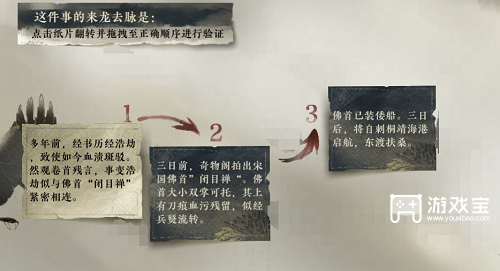 这件事的来龙去脉是：
点击纸片翻转并拖拽至正确顺序进行验证
1
2
3
多年前，经书历经浩劫
，致使如今血渍斑驳。
然观卷首残言，事变浩
劫似与佛首“闭目禅”
紧密相连。
三日前，奇物阁拍出宋
国佛首”闭目禅“。佛
首大小双掌可托，其上
有刀痕血污残留，似经
兵燹流转。
佛首已装倭船。三日
后，将自刺桐靖海港
启航，东渡扶桑。
游戏宝
www.youxibao.com